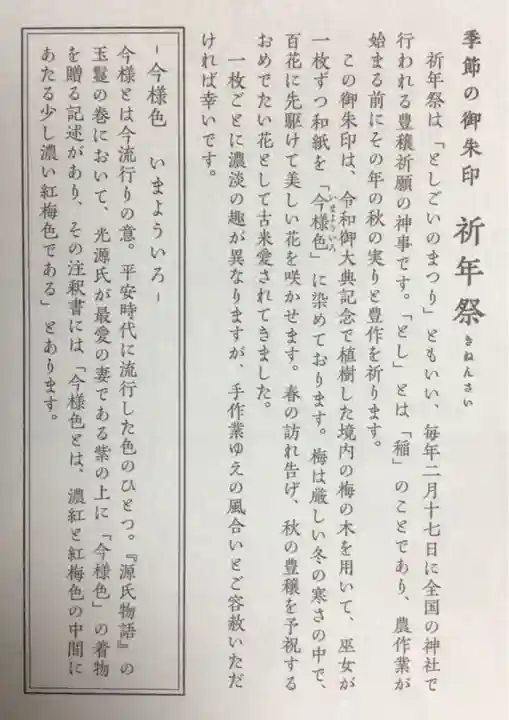 季節の御朱印 祈年祭 きねんさい
祈年祭は「としごいのまつり」ともいい、毎年二月十七日に全国の神社で
行われる豊穣祈願の神事です。「とし」とは「稲」のことであり、農作業が
始まる前にその年の秋の実りと豊作を祈ります。
この御朱印は、令和御大典記念で植樹した境内の梅の木を用いて、巫女が
一枚ずつ和紙を「今様色」に染めております。梅は厳しい冬の寒さの中で、
いまよういろ
百花に先駆けて美しい花を咲かせます。春の訪れ告げ、秋の豊穣を予祝する
おめでたい花として古来愛されてきました。
一枚ごとに濃淡の趣が異なりますが、手作業ゆえの風合いとご容赦いただ
ければ幸いです。
−今様色 いまよういろ−
今様とは今流行りの意。平安時代に流行した色のひとつ。『源氏物語』の
玉鬘の巻において、光源氏が最愛の妻である紫の上に「今様色」の着物
を贈る記述があり、その注釈書には「今様色とは、濃紅と紅梅色の中間に
あたる少し濃い紅梅色である」とあります。